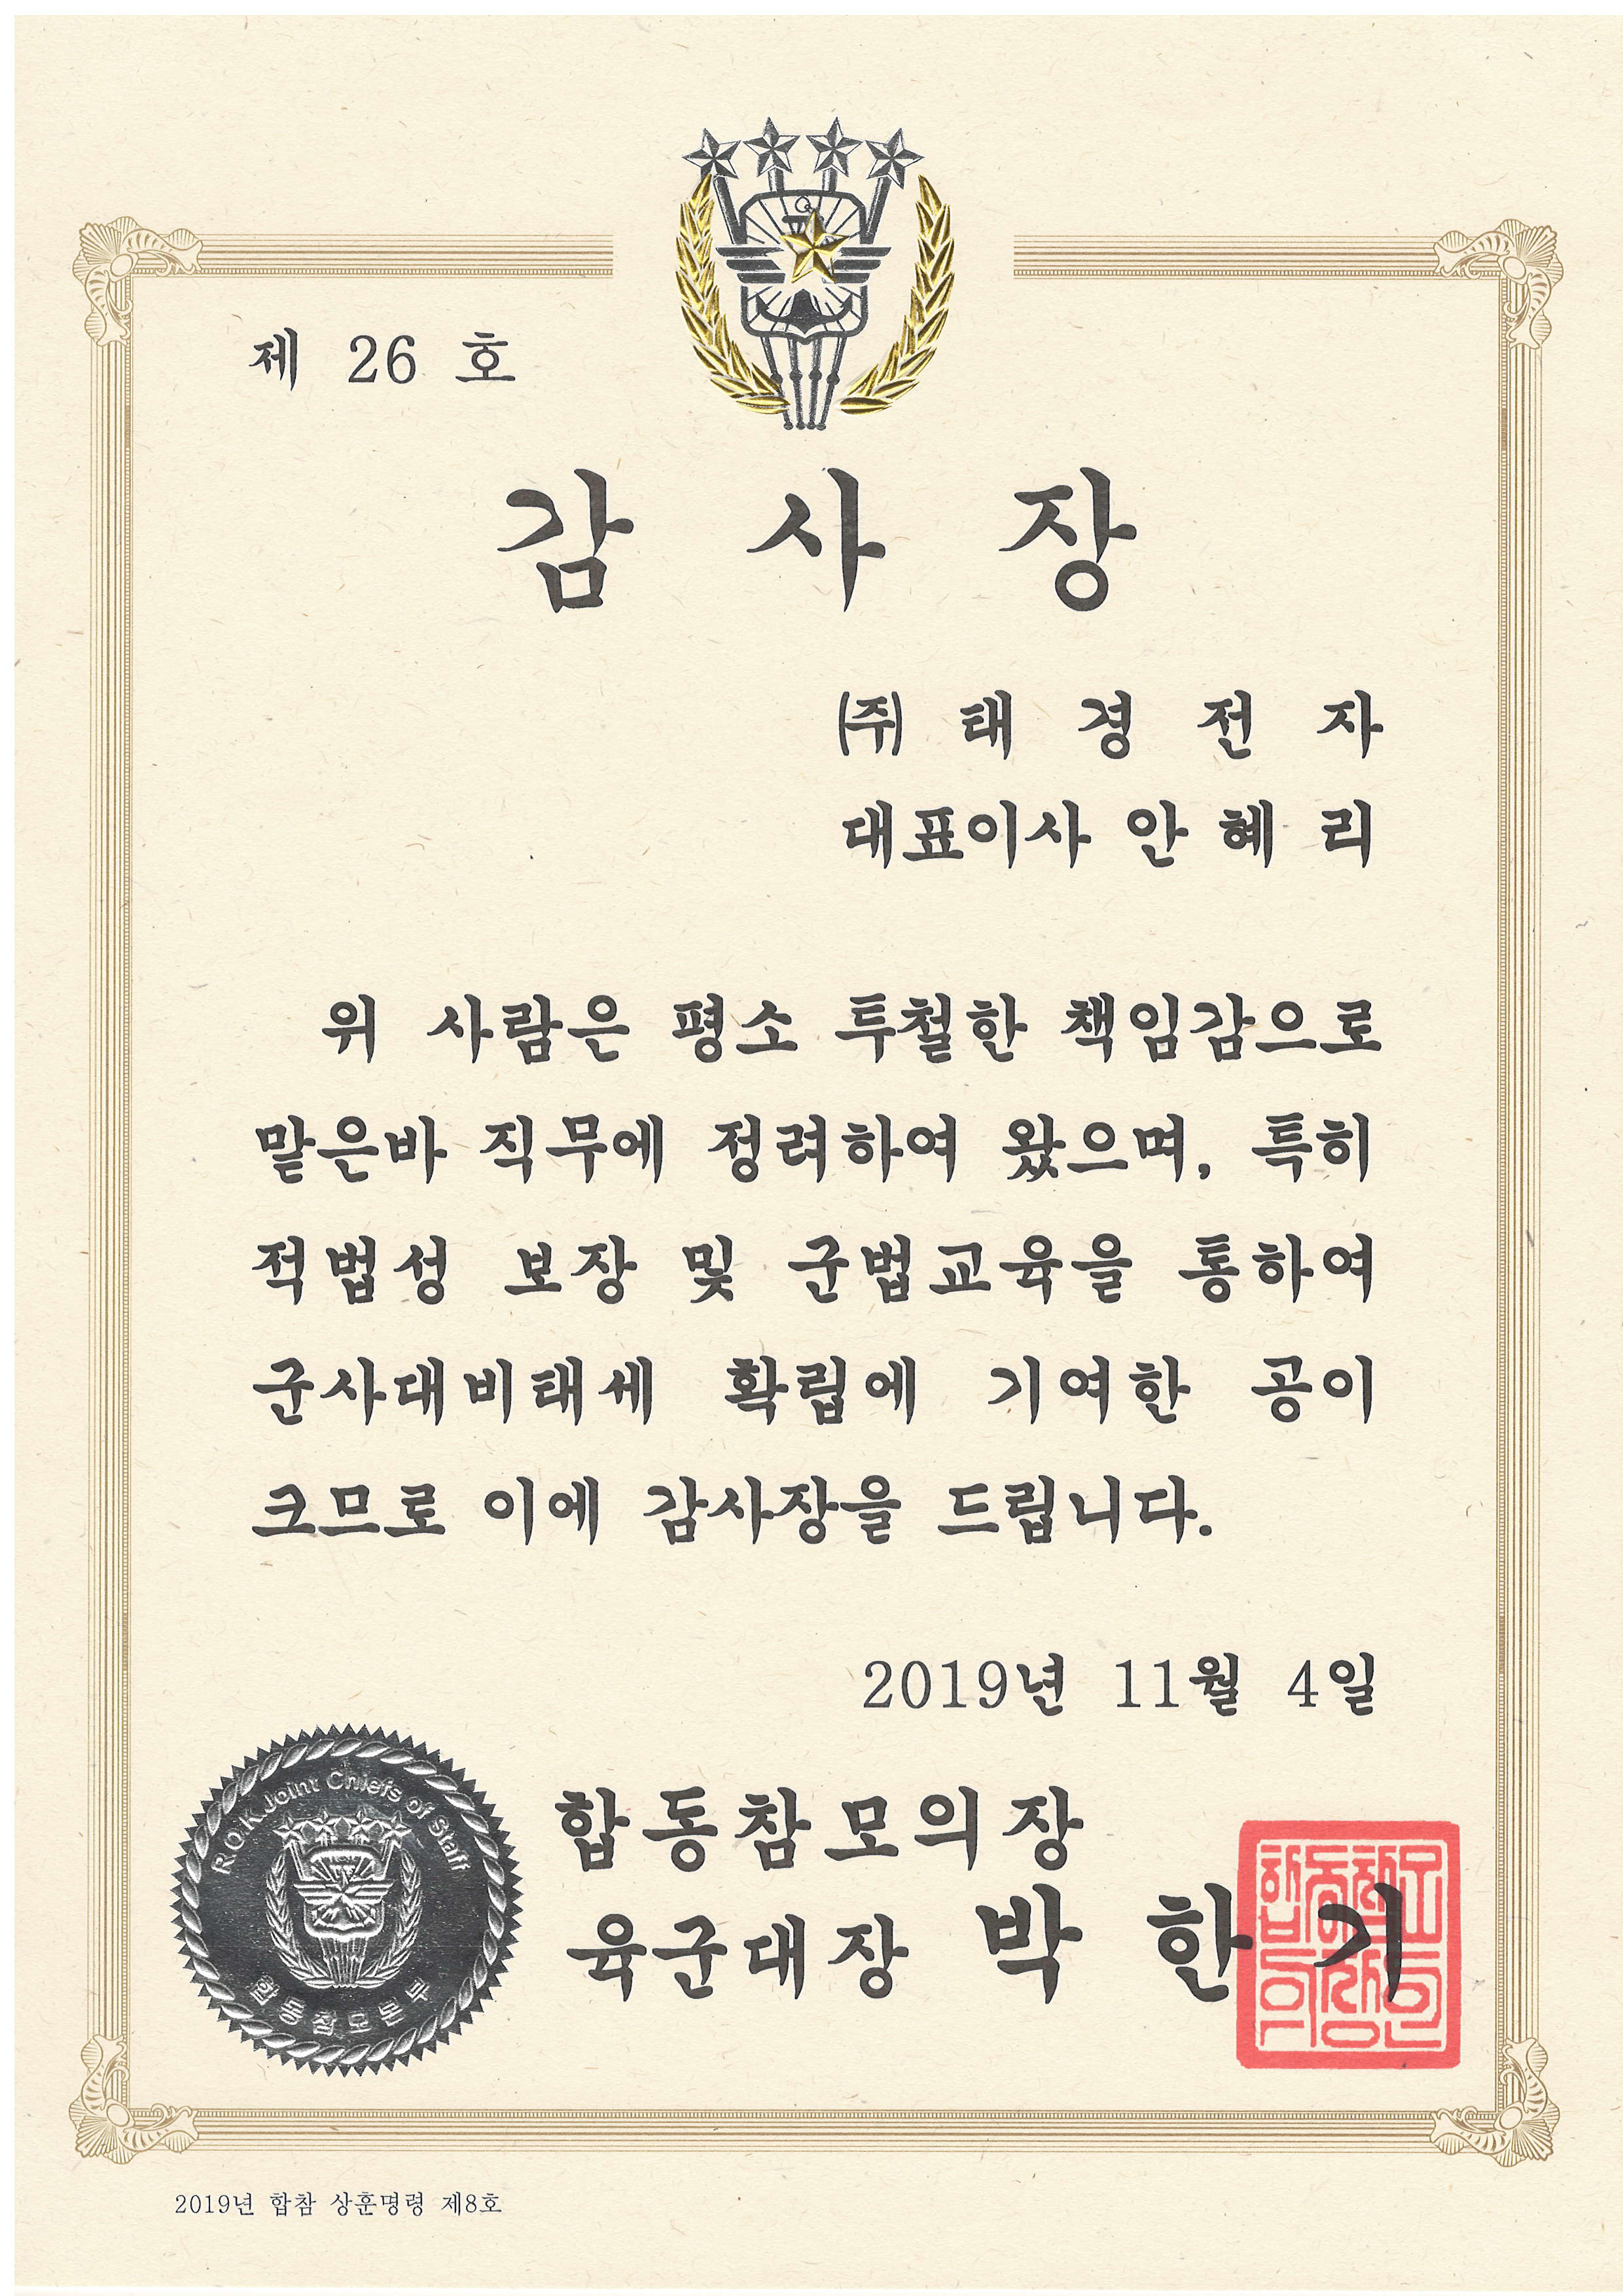 제 26 호
감 사 장
㈜ 태 경 전 자
대표이사 안 혜 리
위 사람은 평소 투철한 책임감으로
맡은바 직무에 정려하여 왔으며, 특히
적법성 보장 및 군법교육을 통하여
군사대비태세 확립에 기여한 공이
크므로 이에 감사장을 드립니다.
2019년 11월 4일
R.O.K Joint Chiefs of Staff
합동참모본부
합동참모의장
육군대장 박 한 기
2019년 합참 상훈명령 제8호